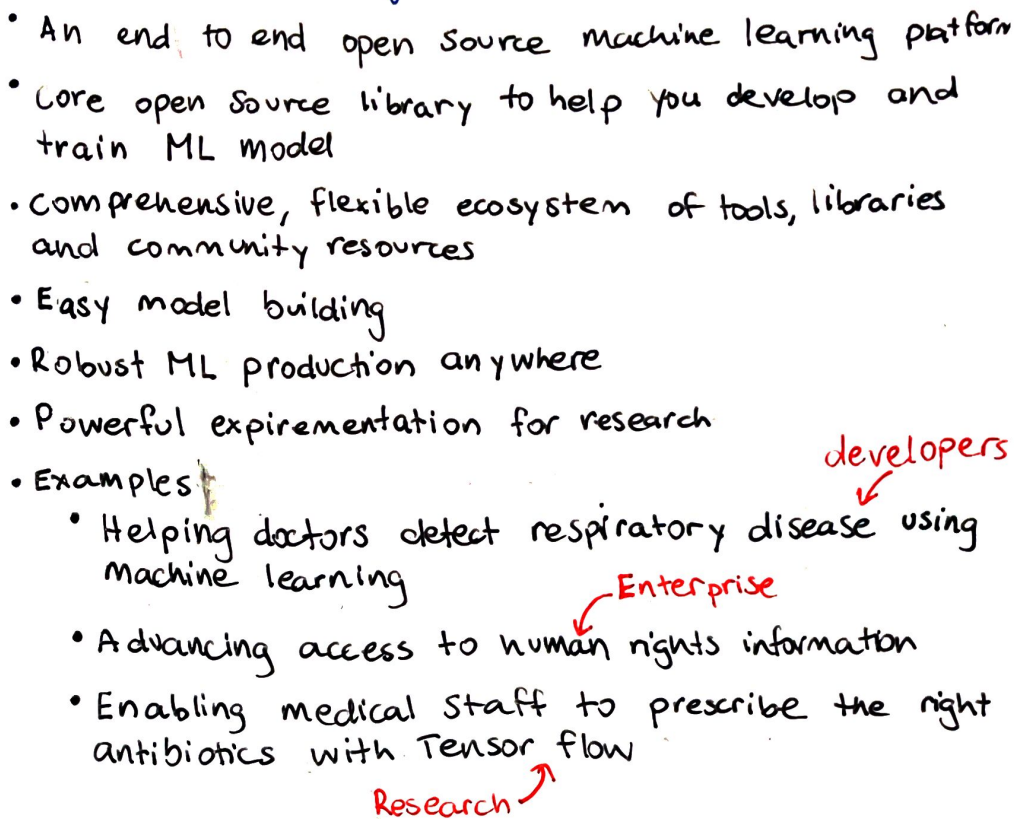 • An end to end open source machine learning platform
• Core open source library to help you develop and
train ML model
• comprehensive, flexible ecosystem of tools, libraries
and community resources
• Easy model building
• Robust ML production anywhere
• Powerful expirementation for research
• Examples
developers
• Helping doctors detect respiratory disease using
machine learning
Enterprise
• Advancing access to human rights information
• Enabling medical staff to prescribe the right
antibiotics with Tensor flow
Research